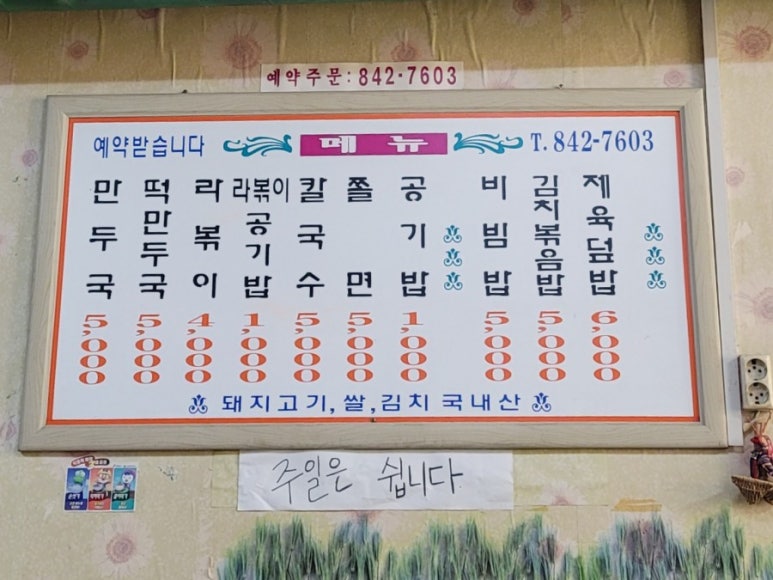 예약주문: 842-7603
예약받습니다 메뉴 T. 842-7603
만두국 5,000
떡만두국 5,000
라볶이 4,000
라볶이공기밥 1,000
칼국수 5,000
쫄면 5,000
공기밥 1,000
비빔밥 5,000
김치볶음밥 5,000
제육덮밥 6,000
돼지고기,쌀,김치 국내산
주일은 쉽니다